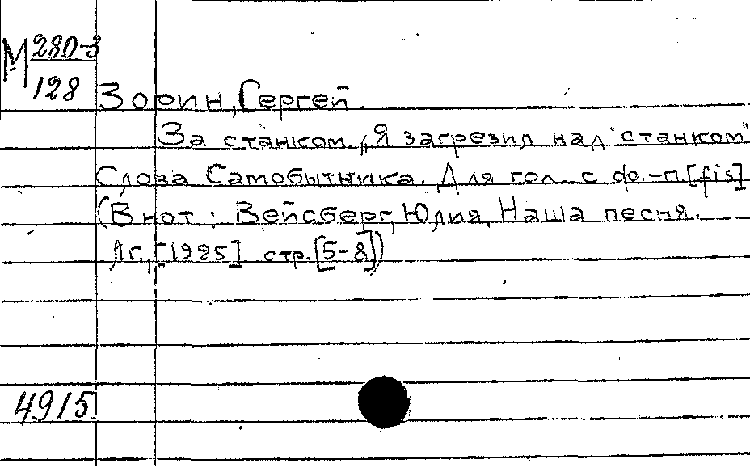 М 280-3
128
Зорин, Сергей.
За станком. „Я загрезил над станком"
Слова Самобытника. Для гол. с ф.-п. [fis]
(В нот: Вейсберг, Юлия. Наша песня.
Лг., [1925] стр. [5-8])
4915